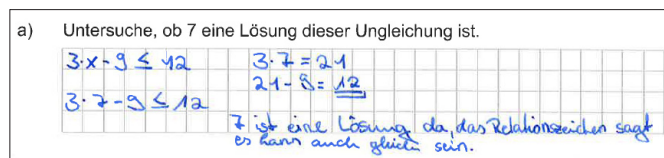 a) Untersuche, ob 7 eine Lösung dieser Ungleichung ist.
3·x-9 ≤ 12 3·7 = 21
21-9= 12
3·7-9 ≤ 12
7 ist eine Lösung da, das Relationszeichen sagt
es kann auch gleich sein.